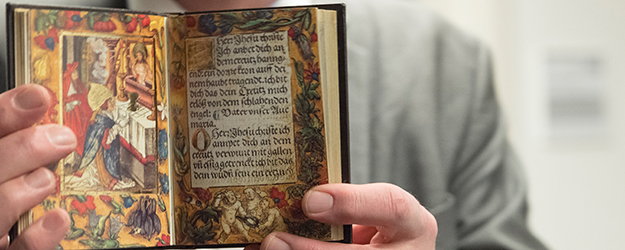 Herr Jhesu christe
Ich anbet dich an
dem creutz hanng
end: ein dornie kron auff dei
nem haubt tragendt. ich bit
dich das dein Creutz mich
erlöß von dem schlahenden
engel: Vater unser Aue
maria.
O Herr Jhesu christe ich
anwet dich an dem
creutz verwunt mit gallen
vn̄ essig getrenckt ich bit das
dein wūdn̄ sein